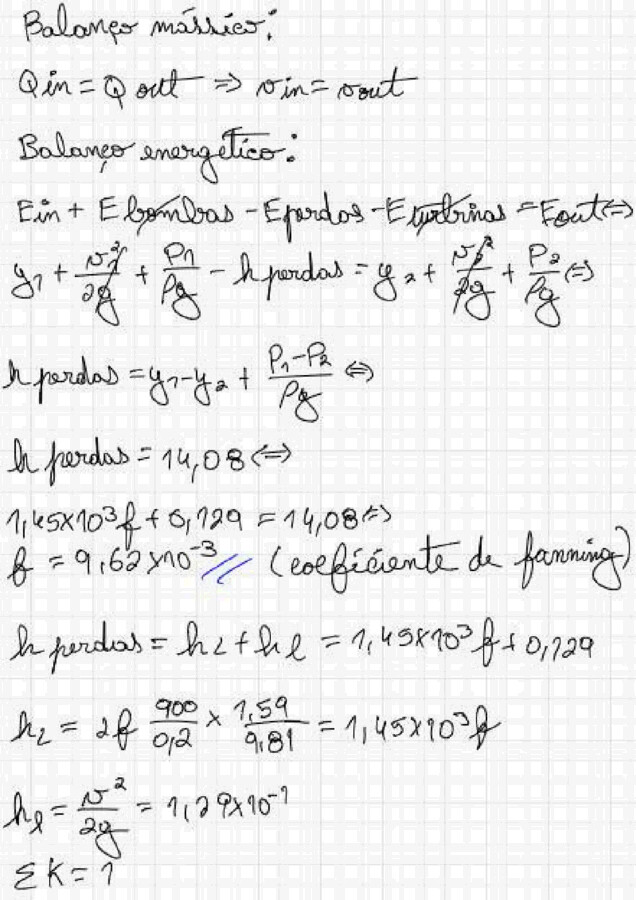 Balanço mássico:
Qin = Qout ⇒ vin = vout
Balanço energético:
Ein + Ebombas - Eperdas - Eturbinas = Eout ⇔
y1 + v1²/2g + P1/ρg - h perdas = y2 + v2²/2g + P2/ρg ⇔
h perdas = y1 - y2 + (P1 - P2)/ρg ⇔
h perdas = 14,08 ⇔
1,45x10³f + 0,129 = 14,08 ⇔
f = 9,62x10⁻³ // (coeficiente de fanning)
h perdas = hL + hl = 1,45x10³f + 0,129
hL = 2f 900/0,2 x 1,59/9,81 = 1,45x10³f
hl = v²/2g = 1,29x10⁻¹
ΣK = 1